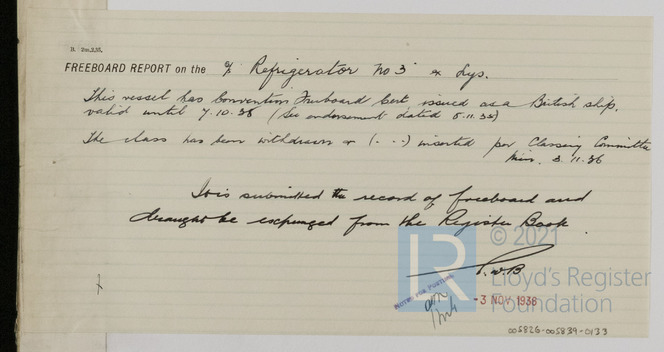 D. 2m,2,35.
FREEBOARD REPORT on the S/S Refrigerator No 3 ex Lys.
This vessel has Convention Freeboard Cert. issued as a British ship,
valid until 7.10.38 (See endorsement dated 5.11.35)
The class has been withdrawn & (. . .) inserted per Classing Committee
Min. 3.11.36
It is submitted the record of freeboard and
draught be expunged from the Register Book.
© 2021
LR
Lloyd's Register
Foundation
NOTED FOR POSTING
-3 NOV 1936
005826-005839-0133